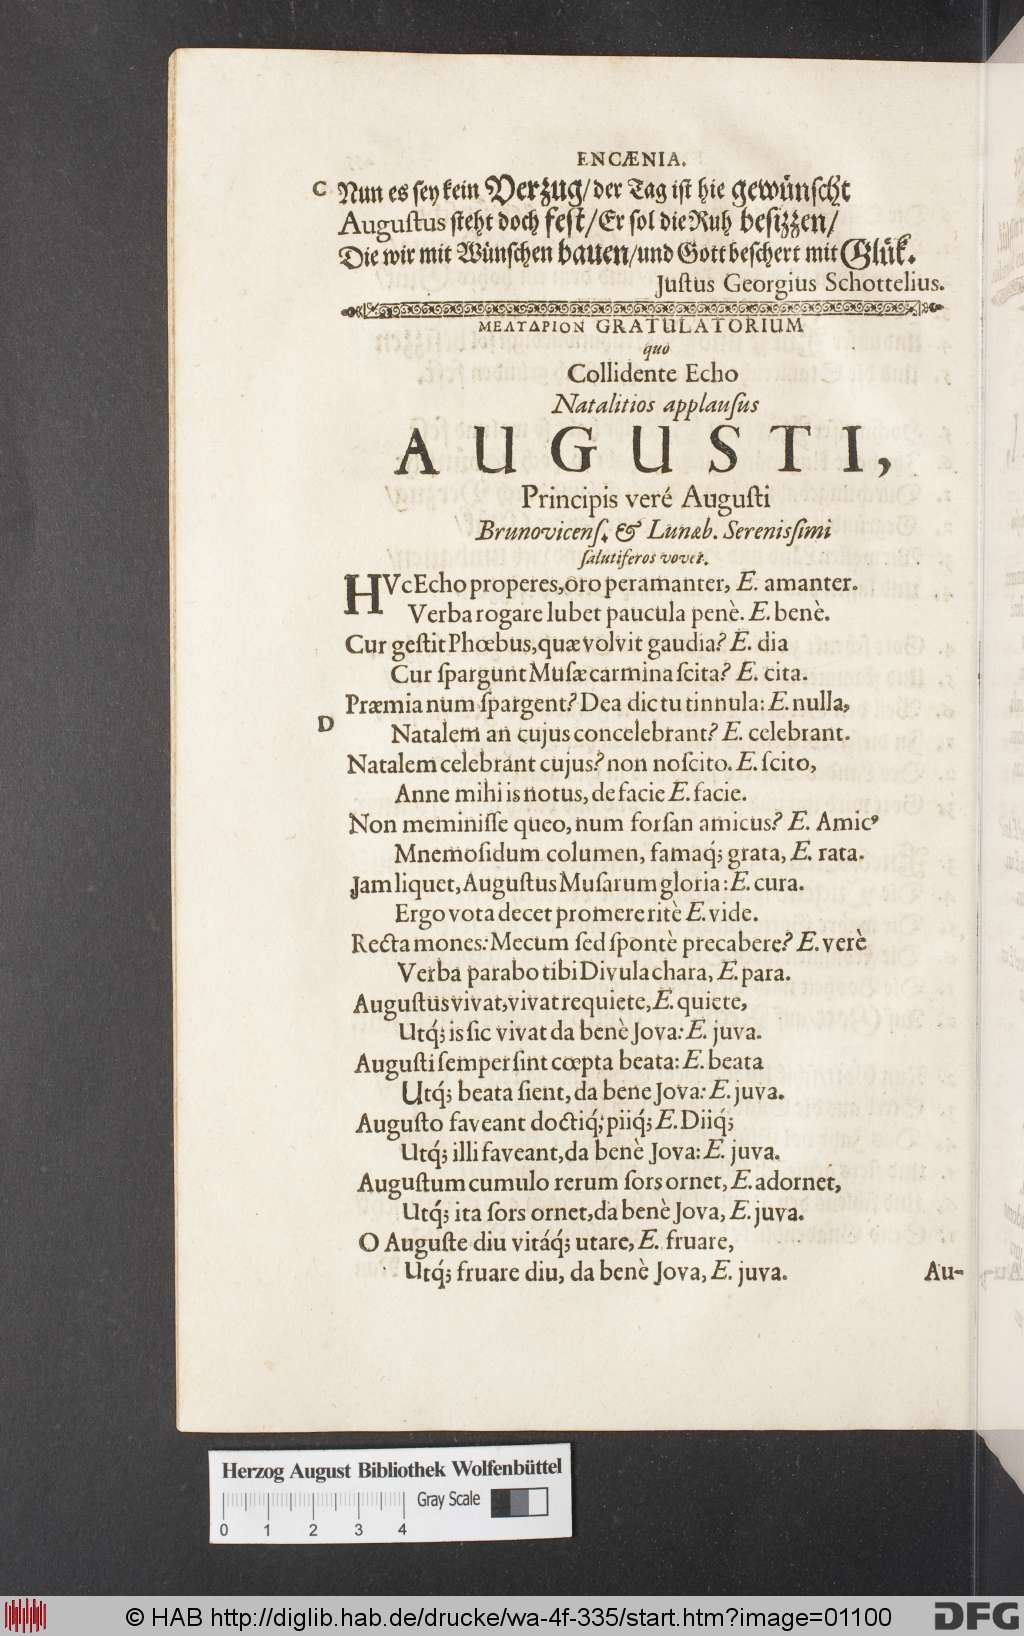 ENCÆNIA.
C Nun es sey kein Verzug/ der Tag ist hie gewünscht
Augustus steht doch fest/ Er sol die Ruh besizzen/
Die wir mit Wünschen bauen/ und Gott beschert mit Glük.
Justus Georgius Schottelius.
ΜΕΛΥΔΡΙΟΝ GRATULATORIUM
quo
Collidente Echo
Natalitios applauſus
AUGUSTI,
Principis veré Auguſti
Brunovicenſ. & Lunæb. Sereniſſimi
ſalutiferos vovet.
HVc Echo properes, oro peramanter, E. amanter.
Verba rogare lubet paucula penè. E. benè.
Cur geſtit Phœbus, quæ volvit gaudia? E. dia
Cur ſpargunt Muſæ carmina ſcita? E. cita.
Præmia num ſpargent? Dea dictu tinnula: E. nulla,
D
Natalem an cujus concelebrant? E. celebrant.
Natalem celebrant cujus? non noſcito. E. ſcito,
Anne mihi is notus, de facie E. facie.
Non meminiſſe queo, num forſan amicus? E. Amicꝰ
Mnemoſidum columen, famaq́; grata, E. rata.
Jam liquet, Auguſtus Muſarum gloria: E. cura.
Ergo vota decet promere ritè E. vide.
Recta mones: Mecum ſed ſpontè precabere? E. verè
Verba parabo tibi Divula chara, E. para.
Auguſtus vivat, vivat requiete, E. quiete,
Utq́; is ſic vivat da benè Jova: E. juva.
Auguſti ſemper ſint cœpta beata: E. beata
Utq́; beata ſient, da bene Jova: E. juva.
Auguſto faveant doctiq́; piiq́; E. Diiq́;
Utq́; illi faveant, da benè Jova: E. juva.
Auguſtum cumulo rerum ſors ornet, E. adornet,
Utq́; ita ſors ornet, da benè Jova, E. juva.
O Auguſte diu vitáq́; utare, E. fruare,
Utq́; fruare diu, da benè Jova, E. juva.
Au-
Herzog August Bibliothek Wolfenbüttel
Gray Scale
0 1 2 3 4
© HAB http://diglib.hab.de/drucke/wa-4f-335/start.htm?image=01100
DFG